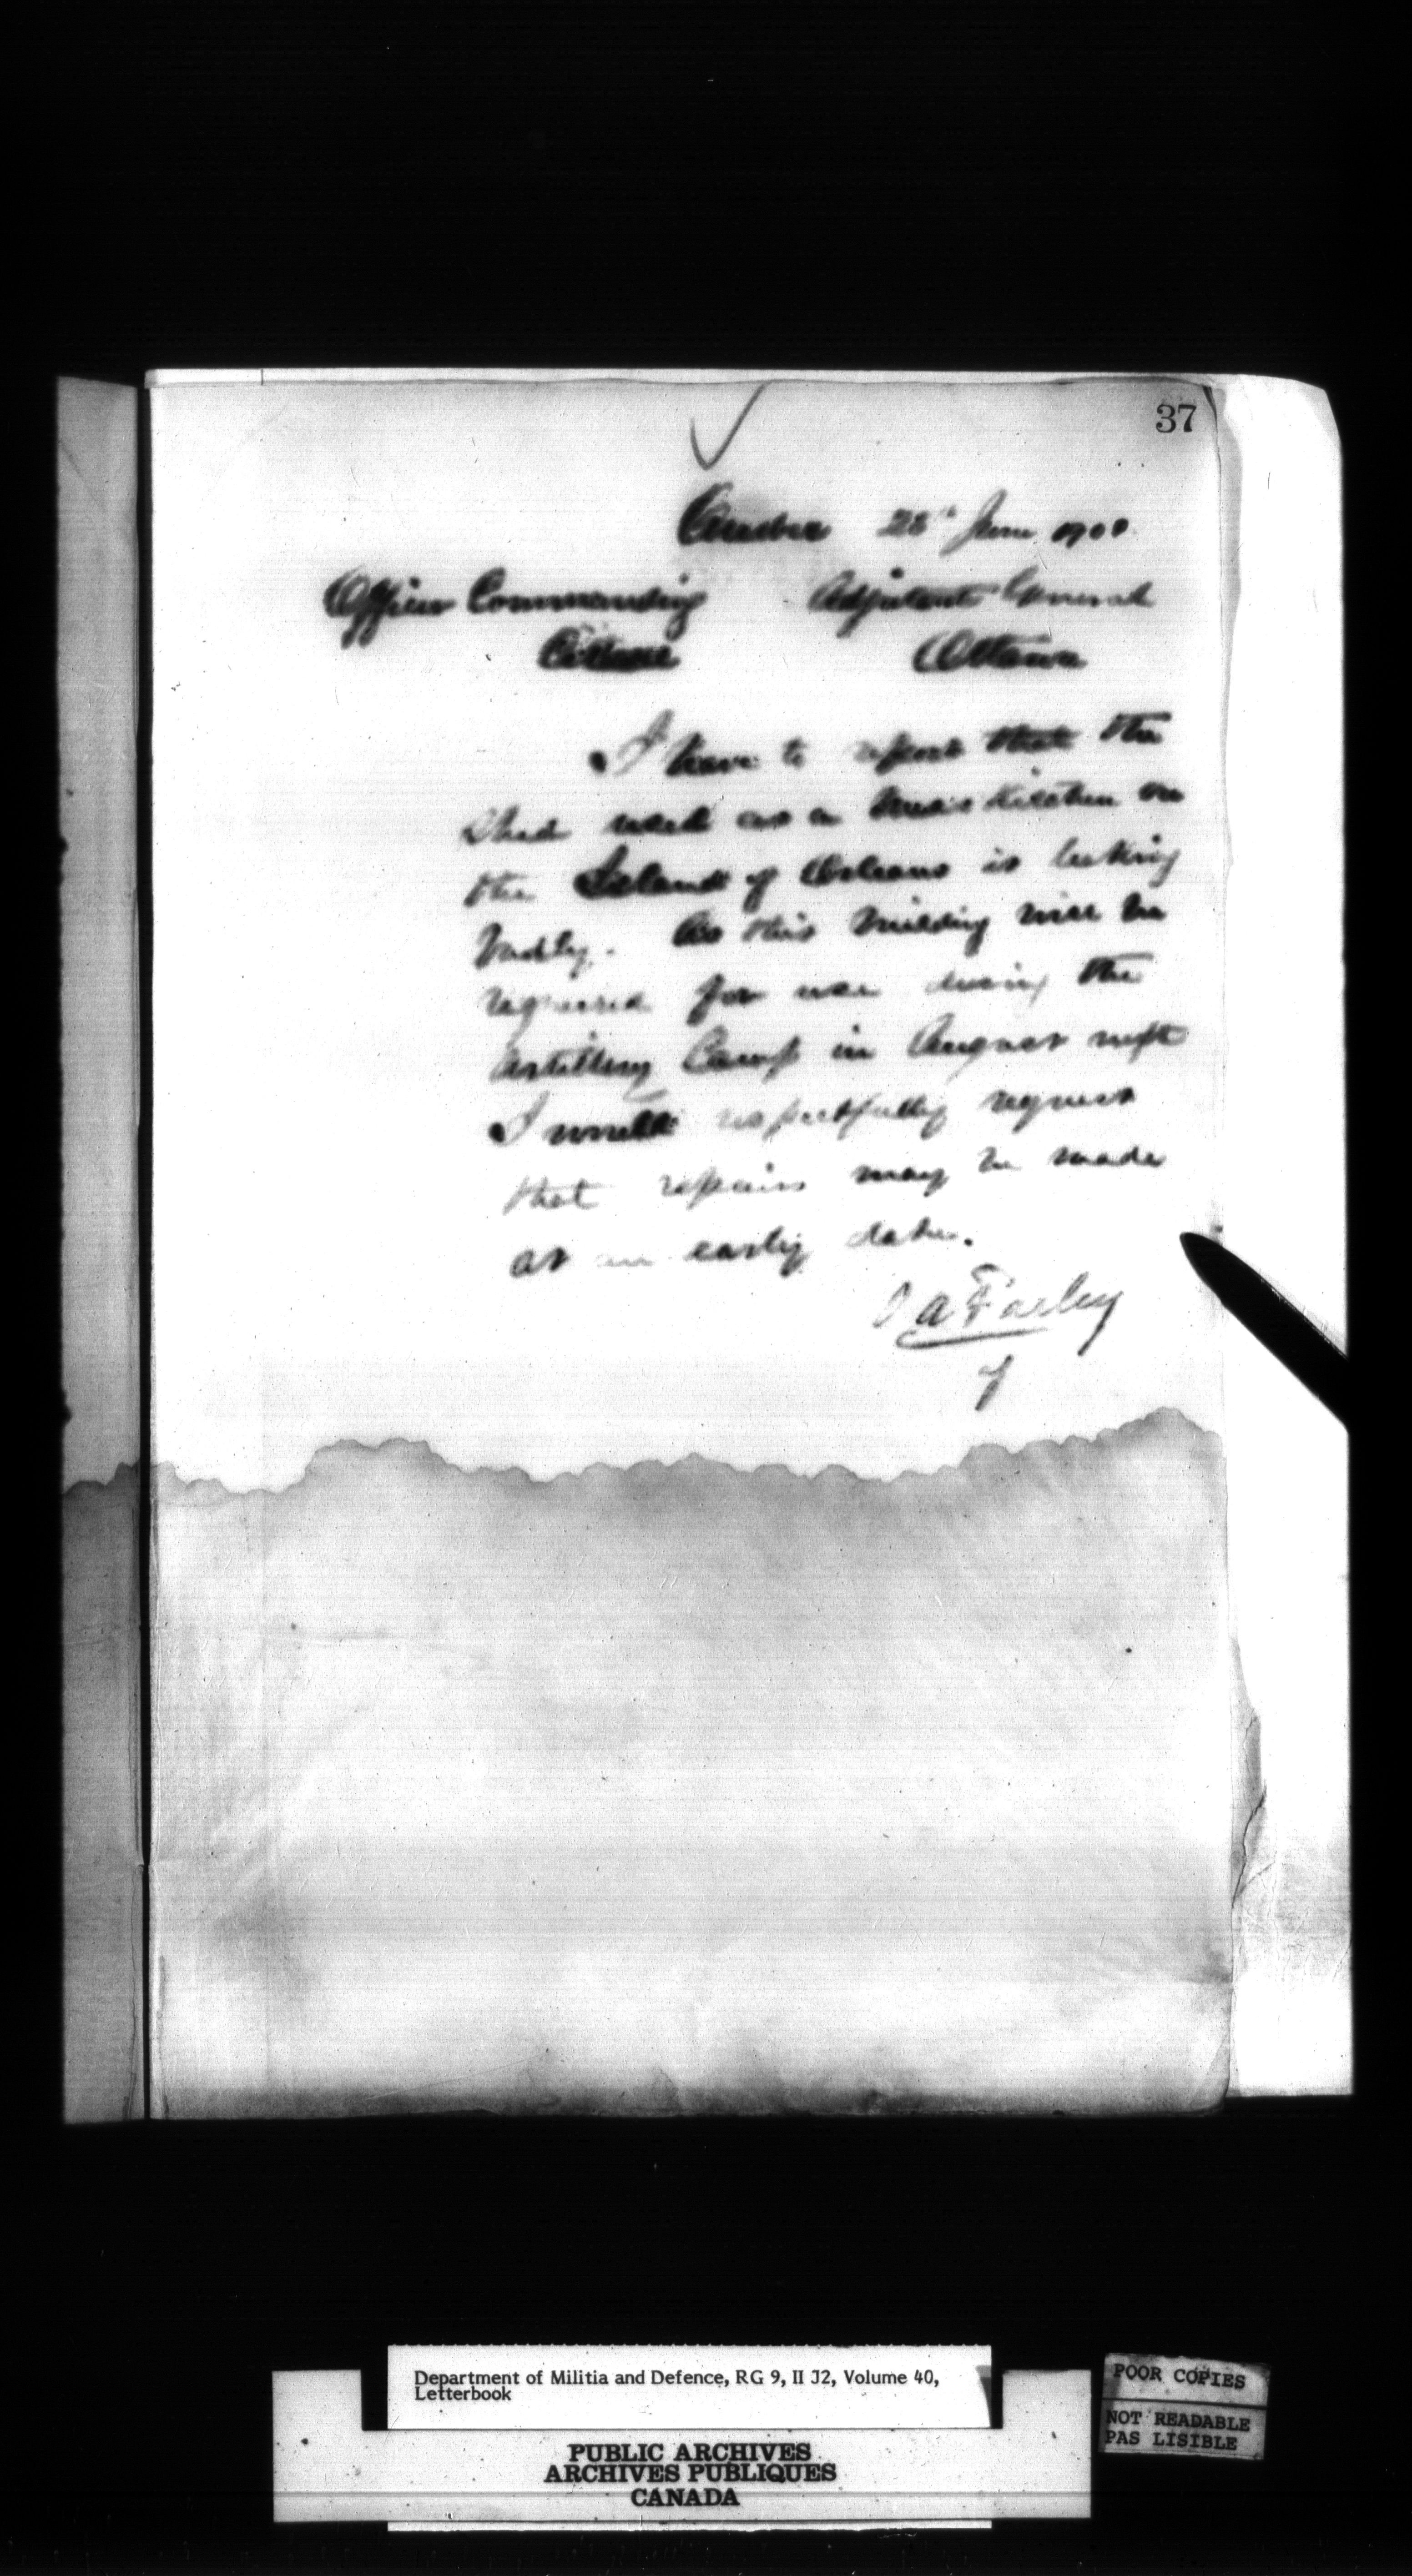 37
Quebec 28th June 1900
Officer Commanding Adjutant General
Citadel Ottawa
I have to report that the
Shed used as a Mess Kitchen on
the Island of Orleans is leaking
badly. As this building will be
required for use during the
Artillery Camp in August next
I would respectfully request
that repairs may be made
at an early date.
Farley
Department of Militia and Defence, RG 9, II J2, Volume 40,
Letterbook
PUBLIC ARCHIVES
ARCHIVES PUBLIQUES
CANADA
POOR COPIES
NOT READABLE
PAS LISIBLE